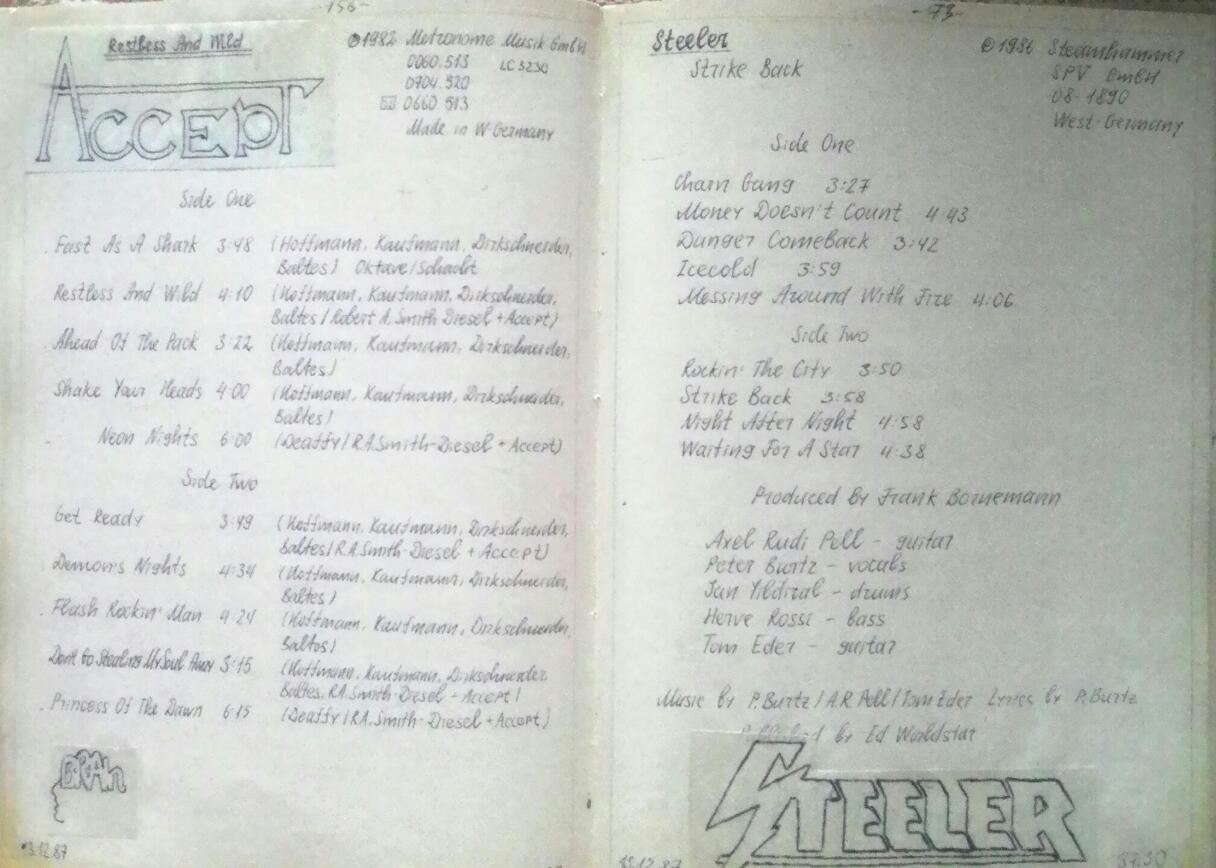 -156-
Restless And Wild
ACCEPT
℗1982 Metronome Musik GmbH
0060.513 LC3230
0704.520
0660 513
Made in W-Germany
Side One
Fast As A Shark 3:48 (Hoffmann, Kaufmann, Dirkschneider,
Baltes)
Restless And Wild 4:10 (Hoffmann, Kaufmann, Dirkschneider,
Baltes / Robert A. Smith Diesel + Accept)
Ahead Of The Pack 3:22 (Hoffmann, Kaufmann, Dirkschneider,
Baltes)
Shake Your Heads 4:00 (Hoffmann, Kaufmann, Dirkschneider,
Baltes)
Neon Nights 6:00 (Deaffy / R.A.Smith-Diesel + Accept)
Side Two
Get Ready 3:49 (Hoffmann, Kaufmann, Dirkschneider,
Baltes / R.A.Smith-Diesel + Accept)
Demon's Nights 4:34 (Hoffmann, Kaufmann, Dirkschneider,
Baltes)
Flash Rockin' Man 4:24 (Hoffmann, Kaufmann, Dirkschneider,
Baltes)
Don't Go Stealing My Soul Away 3:15 (Hoffmann, Kaufmann, Dirkschneider
Baltes, R.A.Smith-Diesel - Accept)
Princess Of The Dawn 6:15 (Deaffy / R.A.Smith-Diesel + Accept)
BRAIN
13.12.87
-73-
Steeler
Strike Back
℗1986 Steamhammer
SPV GmbH
08-1890
West-Germany
Side One
Chain Gang 3:27
Money Doesn't Count 4:43
Danger Comeback 3:42
Icecold 3:59
Messing Around With Fire 4:06
Side Two
Rockin' The City 3:50
Strike Back 3:58
Night After Night 4:58
Waiting For A Star 4:38
Produced By Frank Bornemann
Axel Rudi Pell - guitar
Peter Burtz - vocals
Jan Yildiral - drums
Herve Rossi - bass
Tom Eder - guitar
Music by P.Burtz / A.R.Pell / Tom Eder Lyrics by P.Burtz
Published by Ed Worldstar
STEELER
13.12.87